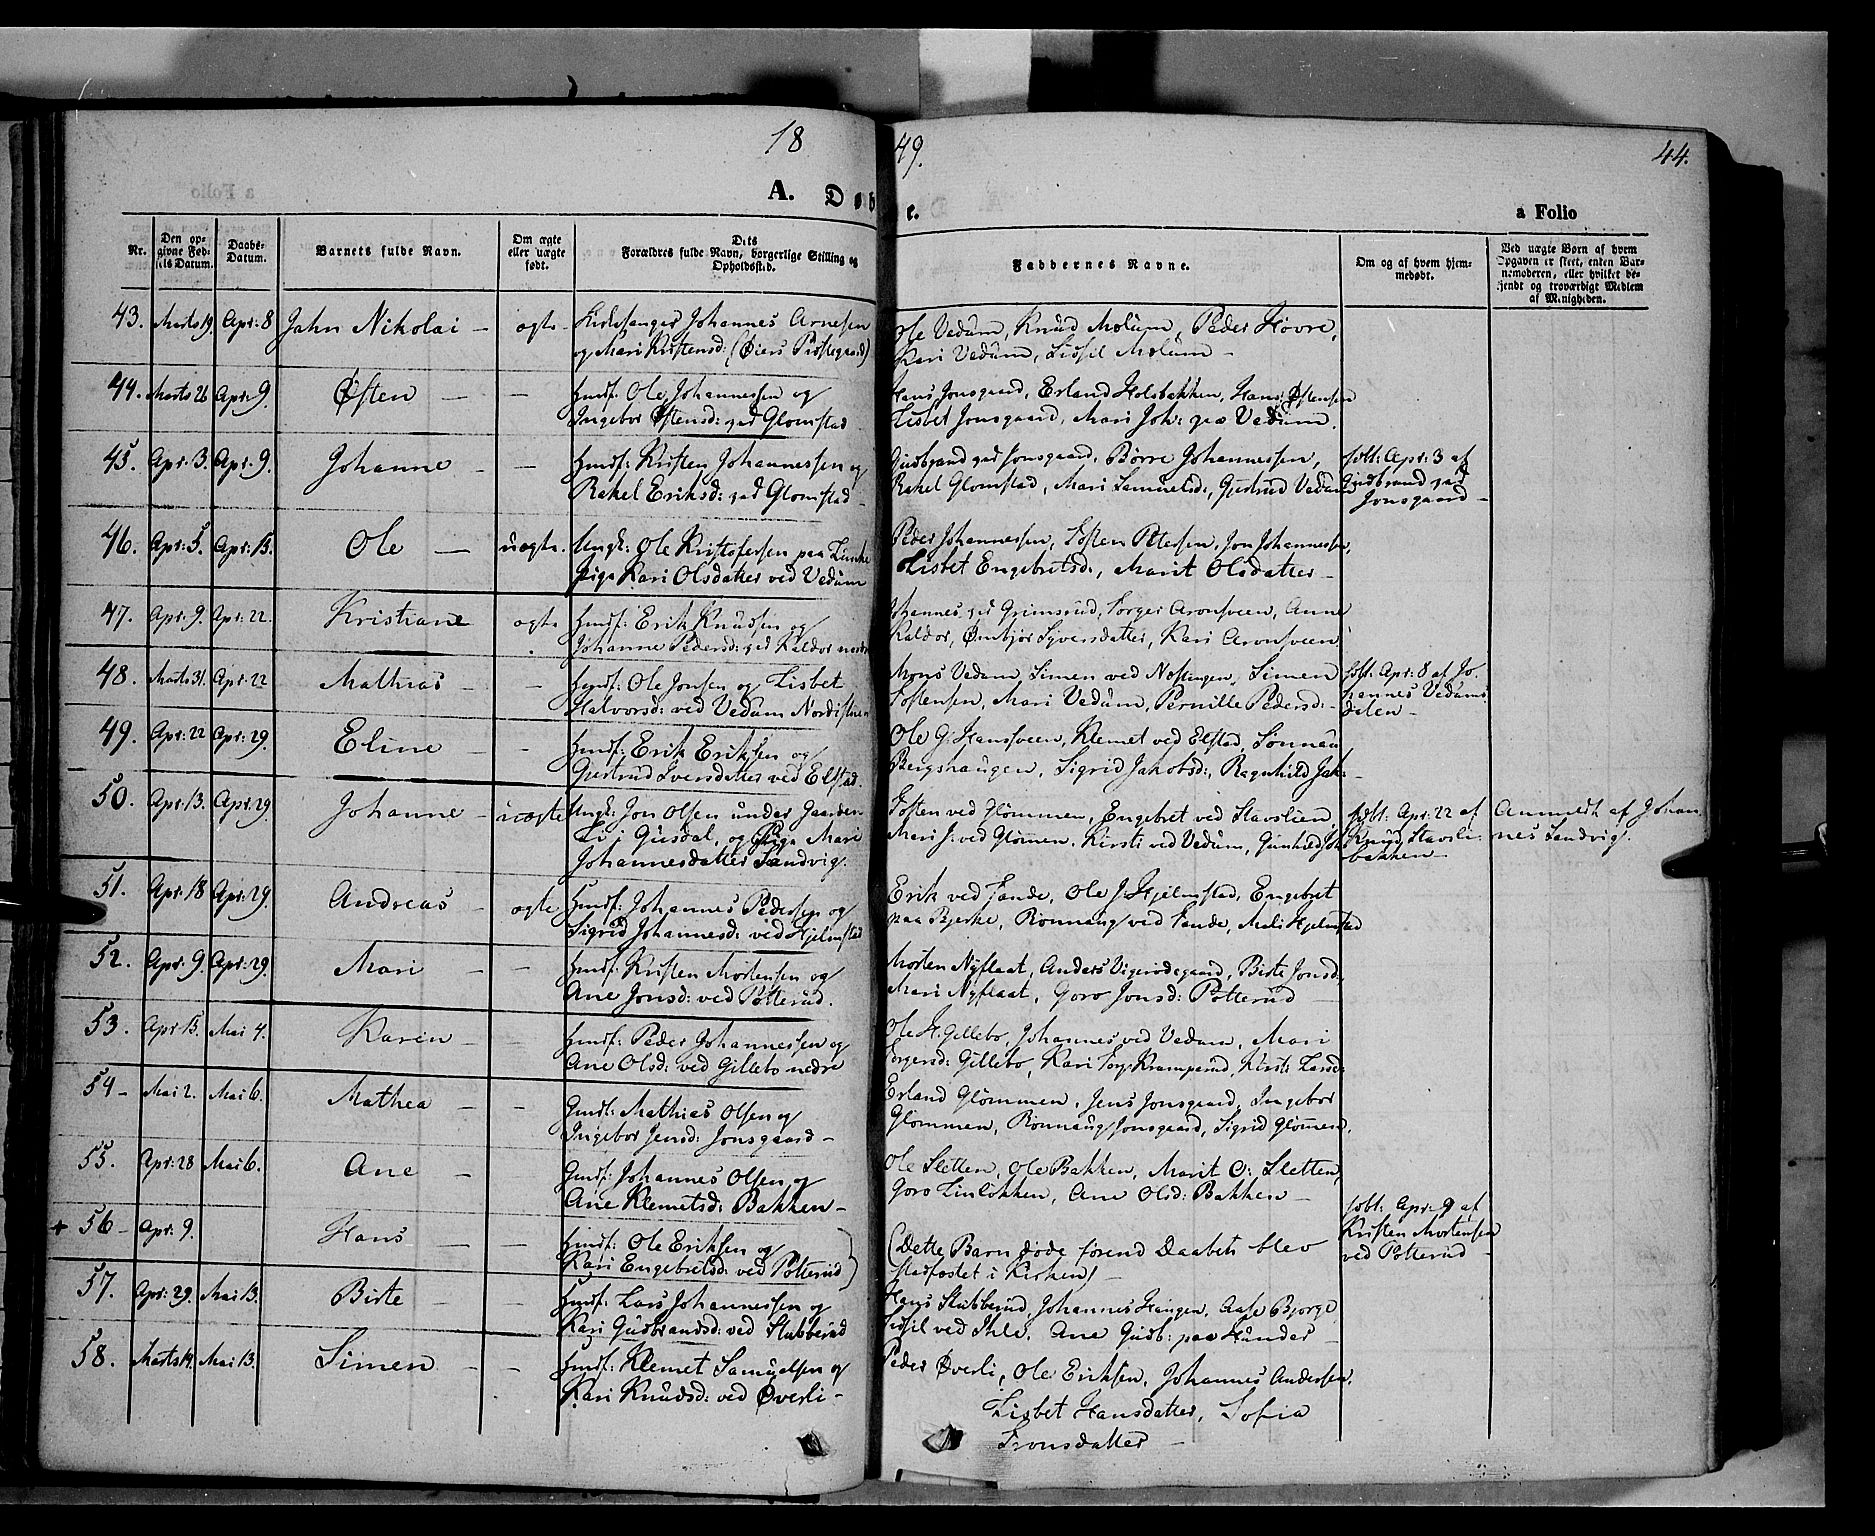 18 49. 44.
A. Døbte. a Folio
Nr.
Den op-
givne Fød-
sels Datum.
Daabs-
Datum.
Barnets fulde Navn.
Om ægte
eller uægte
født.
Dets
Forældres fulde Navn, borgerlige Stilling og
Opholdsted.
Faddernes Navne.
Om og af hvem hjem-
medøbt.
Ved uægte Børn af hvem
Opgaven er skeet, enten Bar-
nemoderen, eller hvilket be-
kjendt og troværdigt Medlem
af Menigheden.
43. Marts 19 Apr: 8 Jahn Nikolai — ægte - Kirkesanger Johannes Arnesen
og Mari Kristensd: (Øiers Præstegaard)
Ole Vedum, Knud Molum, Peder Hovre,
Kari Vedum, Sidsil Molum —
44. Marts 26 Apr: 9. Østen — — Huusf: Ole Johannessen og
Ingebor Østensd: ved Glomstad
Hans Jonsgaard, Erland Holsbakken, Hans Østensen
Lisbet Jonsgaard, Mari Joh: paa Vedum.
45. Apr: 3. Apr: 9. Johanne — — Huusf: Kristen Johannessen og
Rakel Eriksd: ved Glomstad —
Gudbrand ved Jonsgaard, Børre Johannessen,
Rakel Glomstad, Mari Samuelsd:, Gjertrud Vedum
døbt: Apr: 3 af
Gudbrand ved
Jonsgaard —
46. Apr: 5. Apr: 15. Ole — uægte. Ungk: Ole Kristofersen paa
Pige Kari Olsdatter ved Vedum
Peder Johannessen, Tosten Petersen, Jon Johannessen,
Lisbet Engebretsd:, Marit Olsdatter —
47. Apr: 9. Apr: 22. Kristiane ægte Huusf: Erik Knudsen og
Johanne Pedersd: ved Kaldor nordre
Johannes ved Grimsrud, Torger Aronsveen, Anne
Kaldor, Syversdatter, Kari Aronsveen
48. Marts 31. Apr: 22 Mathias — — Huusf: Ole Jonsen og Lisbet
Halvorsd: ved Vedum Nordistuen
Mons Vedum, Simen ved Nostingen, Simen
Tostensen, Mari Vedum, Pernille Pedersd: —
døbt: Apr: 8 af Jo-
hannes Vedums-
dalen —
49. Apr: 22 Apr: 29. Eline — — Huusf: Erik Eriksen og
Gjertrud Iversdatter ved Elstad.
Ole G: Hansveen, Klemet ved Elstad, Sønnau
Bergshaugen, Sigrid Jakobsd:, Ragnhild Jak: —
50. Apr: 13. Apr: 29. Johanne — uægte Ungk: Jon Olsen under Gaarden
Li i Gusdal, og Pige Mari
Johannesdatter Sandvig.
Tosten ved Glømmen, Engebret ved Stavslien,
Mari J. ved Glømen, Kirsti ved Vedum, Gunhild
døbt: Apr: 22 af
Knud Stavsli-
bakken —
Anmeldt af Johan-
nes Sandvig.
51. Apr: 18 Apr: 29. Andreas — ægte Huusf: Johannes Pedersen og
Sigrid Johannesd: ved Hjelmstad
Erik ved Tande, Ole J: Hjelmstad, Engebret
paa Bjerke, Rønnaug ved Tande, Mali Hjelmstad
52. Apr: 9. Apr: 29. Mari — — Huusf: Kristen Mortensen og
Ane Jonsd: ved Potterud.
Morten Nyflaat, Anders Vigerødegaard, Birte Jonsd:,
Mari Nyflaat, Goro Jonsd: Potterud
53. Apr: 15. Mai 4. Karen — Huusf: Peder Johannessen og
Ane Olsd: ved Gillebo nedre
Ole H. Gillebo, Johannes ved Vedum, Mari
Torgersd: Gillebo, Kari Torg: Kramperud, Kirsti Larsd:
54 — Mai 2. Mai 6. Mathea — — Huusf: Mathias Olsen og
Ingebor Jensd: Jonsgaard —
Erland Glømmen, Jens Jonsgaard, Ingebor
Glømmen, Rønnaug Jonsgaard, Sigrid Glømen.
55. Apr: 28 Mai 6. Ane — Huusf: Johannes Olsen og
Ane Klemetsd: Bakken —
Ole Sletten, Ole Bakken, Marit O: Sletten,
Goro Linløkken, Ane Olsd: Bakken —
+ 56 — Apr: 9. Hans — — Huusf: Ole Eriksen og
Kari Engebretsd: ved Potterud)
(Dette Barn døde førend Daaben blev
stadfæstet i Kirken) —
døbt: Apr: 9 af
Kristen Mortensen
ved Potterud —
57. Apr: 29. Mai 13. Birte — — Huusf: Lars Johannessen og
Kari Gudbrandsd: ved Stubberud
Hans Stubberud, Johannes Haugen, Aase Bjorge,
Sidsil ved Ihle, Ane Gudb: paa Hunder —
58. Marts 14. Mai 13. Simen — — Huusf: Klemet Samuelsen og
Kari Knudsd: ved Øverli —
Peder Øverli, Ole Eriksen, Johannes Andersen,
Lisbet Hansdatter, Sofia
Tronsdatter —